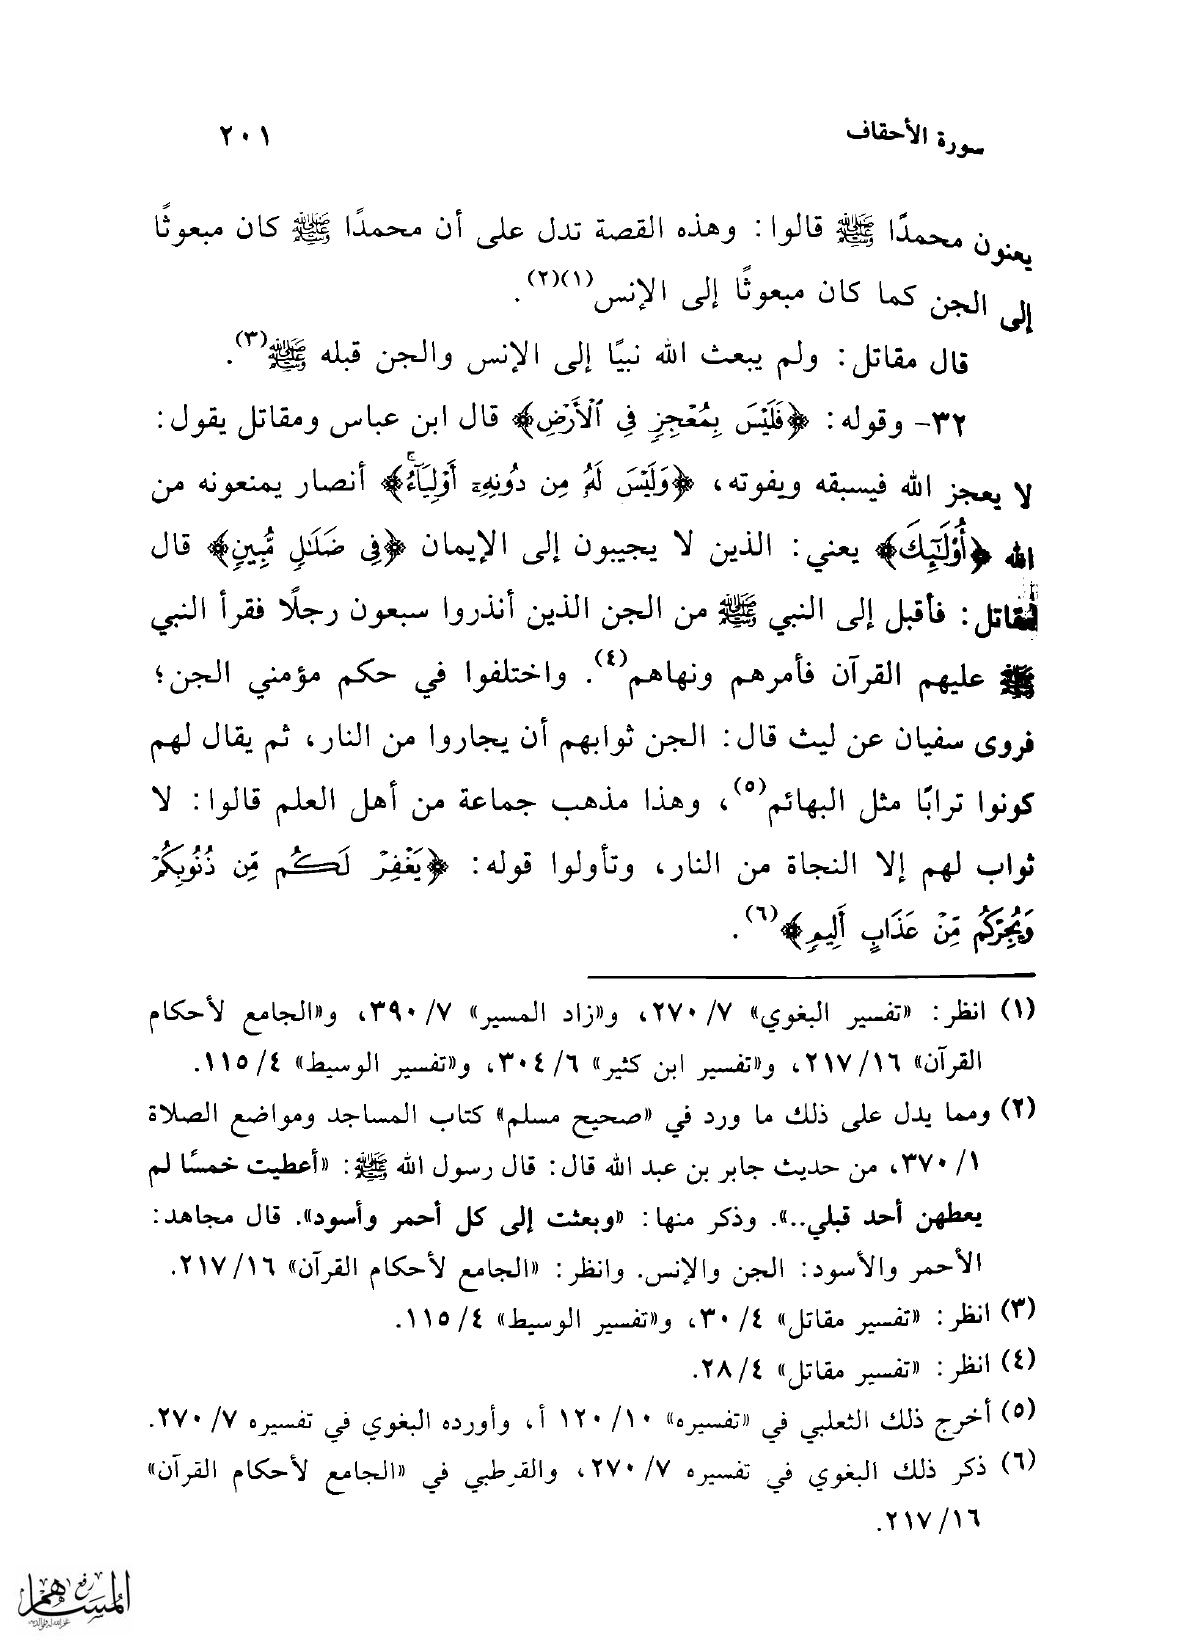 سورة الأحقاف ٢٠١
يعنون محمدًا ﷺ قالوا: وهذه القصة تدل على أن محمدًا ﷺ كان مبعوثًا
إلى الجن كما كان مبعوثًا إلى الإنس(١)(٢).
قال مقاتل: ولم يبعث الله نبيًا إلى الإنس والجن قبله ﷺ(٣).
٣٢- وقوله: ﴿فَلَيْسَ بِمُعْجِزٍ فِي ٱلْأَرْضِ﴾ قال ابن عباس ومقاتل يقول:
لا يعجز الله فيسبقه ويفوته، ﴿وَلَيْسَ لَهُ مِن دُونِهِۦٓ أَوْلِيَآءُ ۚ﴾ أنصار يمنعونه من
الله ﴿أُوْلَـٰٓئِكَ﴾ يعني: الذين لا يجيبون إلى الإيمان ﴿فِي ضَلَـٰلٍ مُّبِينٍ﴾ قال
مقاتل: فأقبل إلى النبي ﷺ من الجن الذين أنذروا سبعون رجلًا فقرأ النبي
ﷺ عليهم القرآن فأمرهم ونهاهم(٤). واختلفوا في حكم مؤمني الجن؛
فروى سفيان عن ليث قال: الجن ثوابهم أن يجاروا من النار، ثم يقال لهم
كونوا ترابًا مثل البهائم(٥)، وهذا مذهب جماعة من أهل العلم قالوا: لا
ثواب لهم إلا النجاة من النار، وتأولوا قوله: ﴿يَغْفِرْ لَكُم مِّن ذُنُوبِكُمْ
وَيُجِرْكُم مِّنْ عَذَابٍ أَلِيمٍ﴾(٦).
(١) انظر: «تفسير البغوي» ٧/ ٢٧٠، و«زاد المسير» ٧/ ٣٩٠، و«الجامع لأحكام
القرآن» ١٦/ ٢١٧، و«تفسير ابن كثير» ٦/ ٣٠٤، و«تفسير الوسيط» ٤/ ١١٥.
(٢) ومما يدل على ذلك ما ورد في «صحيح مسلم» كتاب المساجد ومواضع الصلاة
١/ ٣٧٠، من حديث جابر بن عبد الله قال: قال رسول الله ﷺ: «أعطيت خمسًا لم
يعطهن أحد قبلي..». وذكر منها: «وبعثت إلى كل أحمر وأسود». قال مجاهد:
الأحمر والأسود: الجن والإنس. وانظر: «الجامع لأحكام القرآن» ١٦/ ٢١٧.
(٣) انظر: «تفسير مقاتل» ٤/ ٣٠، و«تفسير الوسيط» ٤/ ١١٥.
(٤) انظر: «تفسير مقاتل» ٤/ ٢٨.
(٥) أخرج ذلك الثعلبي في «تفسيره» ١٠/ ١٢٠ أ، وأورده البغوي في تفسيره ٧/ ٢٧٠.
(٦) ذكر ذلك البغوي في تفسيره ٧/ ٢٧٠، والقرطبي في «الجامع لأحكام القرآن»
١٦/ ٢١٧.